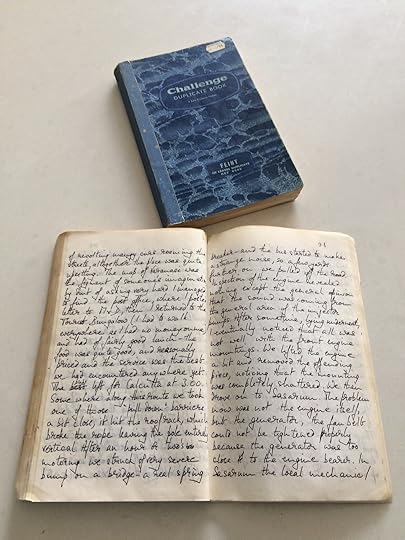 Challenge
DUPLICATE BOOK
FEINT
of revolting mangy curs roaming the
streets, altogether the place was quite
upsetting. The map of Benares was
the figment of someone's imagination
but after asking very hard I managed
to find the post office, where I posted
letter to I returned to the
Tourist Bungalow (I had to walk
everywhere as I had no money on me)
and had a fairly good lunch - the
food was quite good, and reasonably
priced and the service was the best
we had encountered anywhere yet.
The left for Calcutta at 3.00.
Some where along the route we took
one of those 'pull down' barriers
a bit close, it hit the roof rack, which
broke the rope leaving the pole entirely
vertical. After an hour or two's
motoring we struck a very severe
bump on a bridge - a real spring
31
breaker - and the bus started to make
a strange noise, so a few yards
further on we pulled off the road.
Inspection of the engine revealed
nothing except the general opinion
that the sound was coming from
the general area of the injector
pumps. After sometime lying underneath
I eventually noticed that all was
not well with the front engine
mountings. We lifted the engine
a bit and removed the offending
piece, noticing that the mounting
was completely shattered. We then
drove on to Sasaram. The problem
now was not the engine itself,
but the generator, the fan belt
could not be tightened properly
because the generator was too
close to the engine bearer. In
Sasaram the local mechanic /